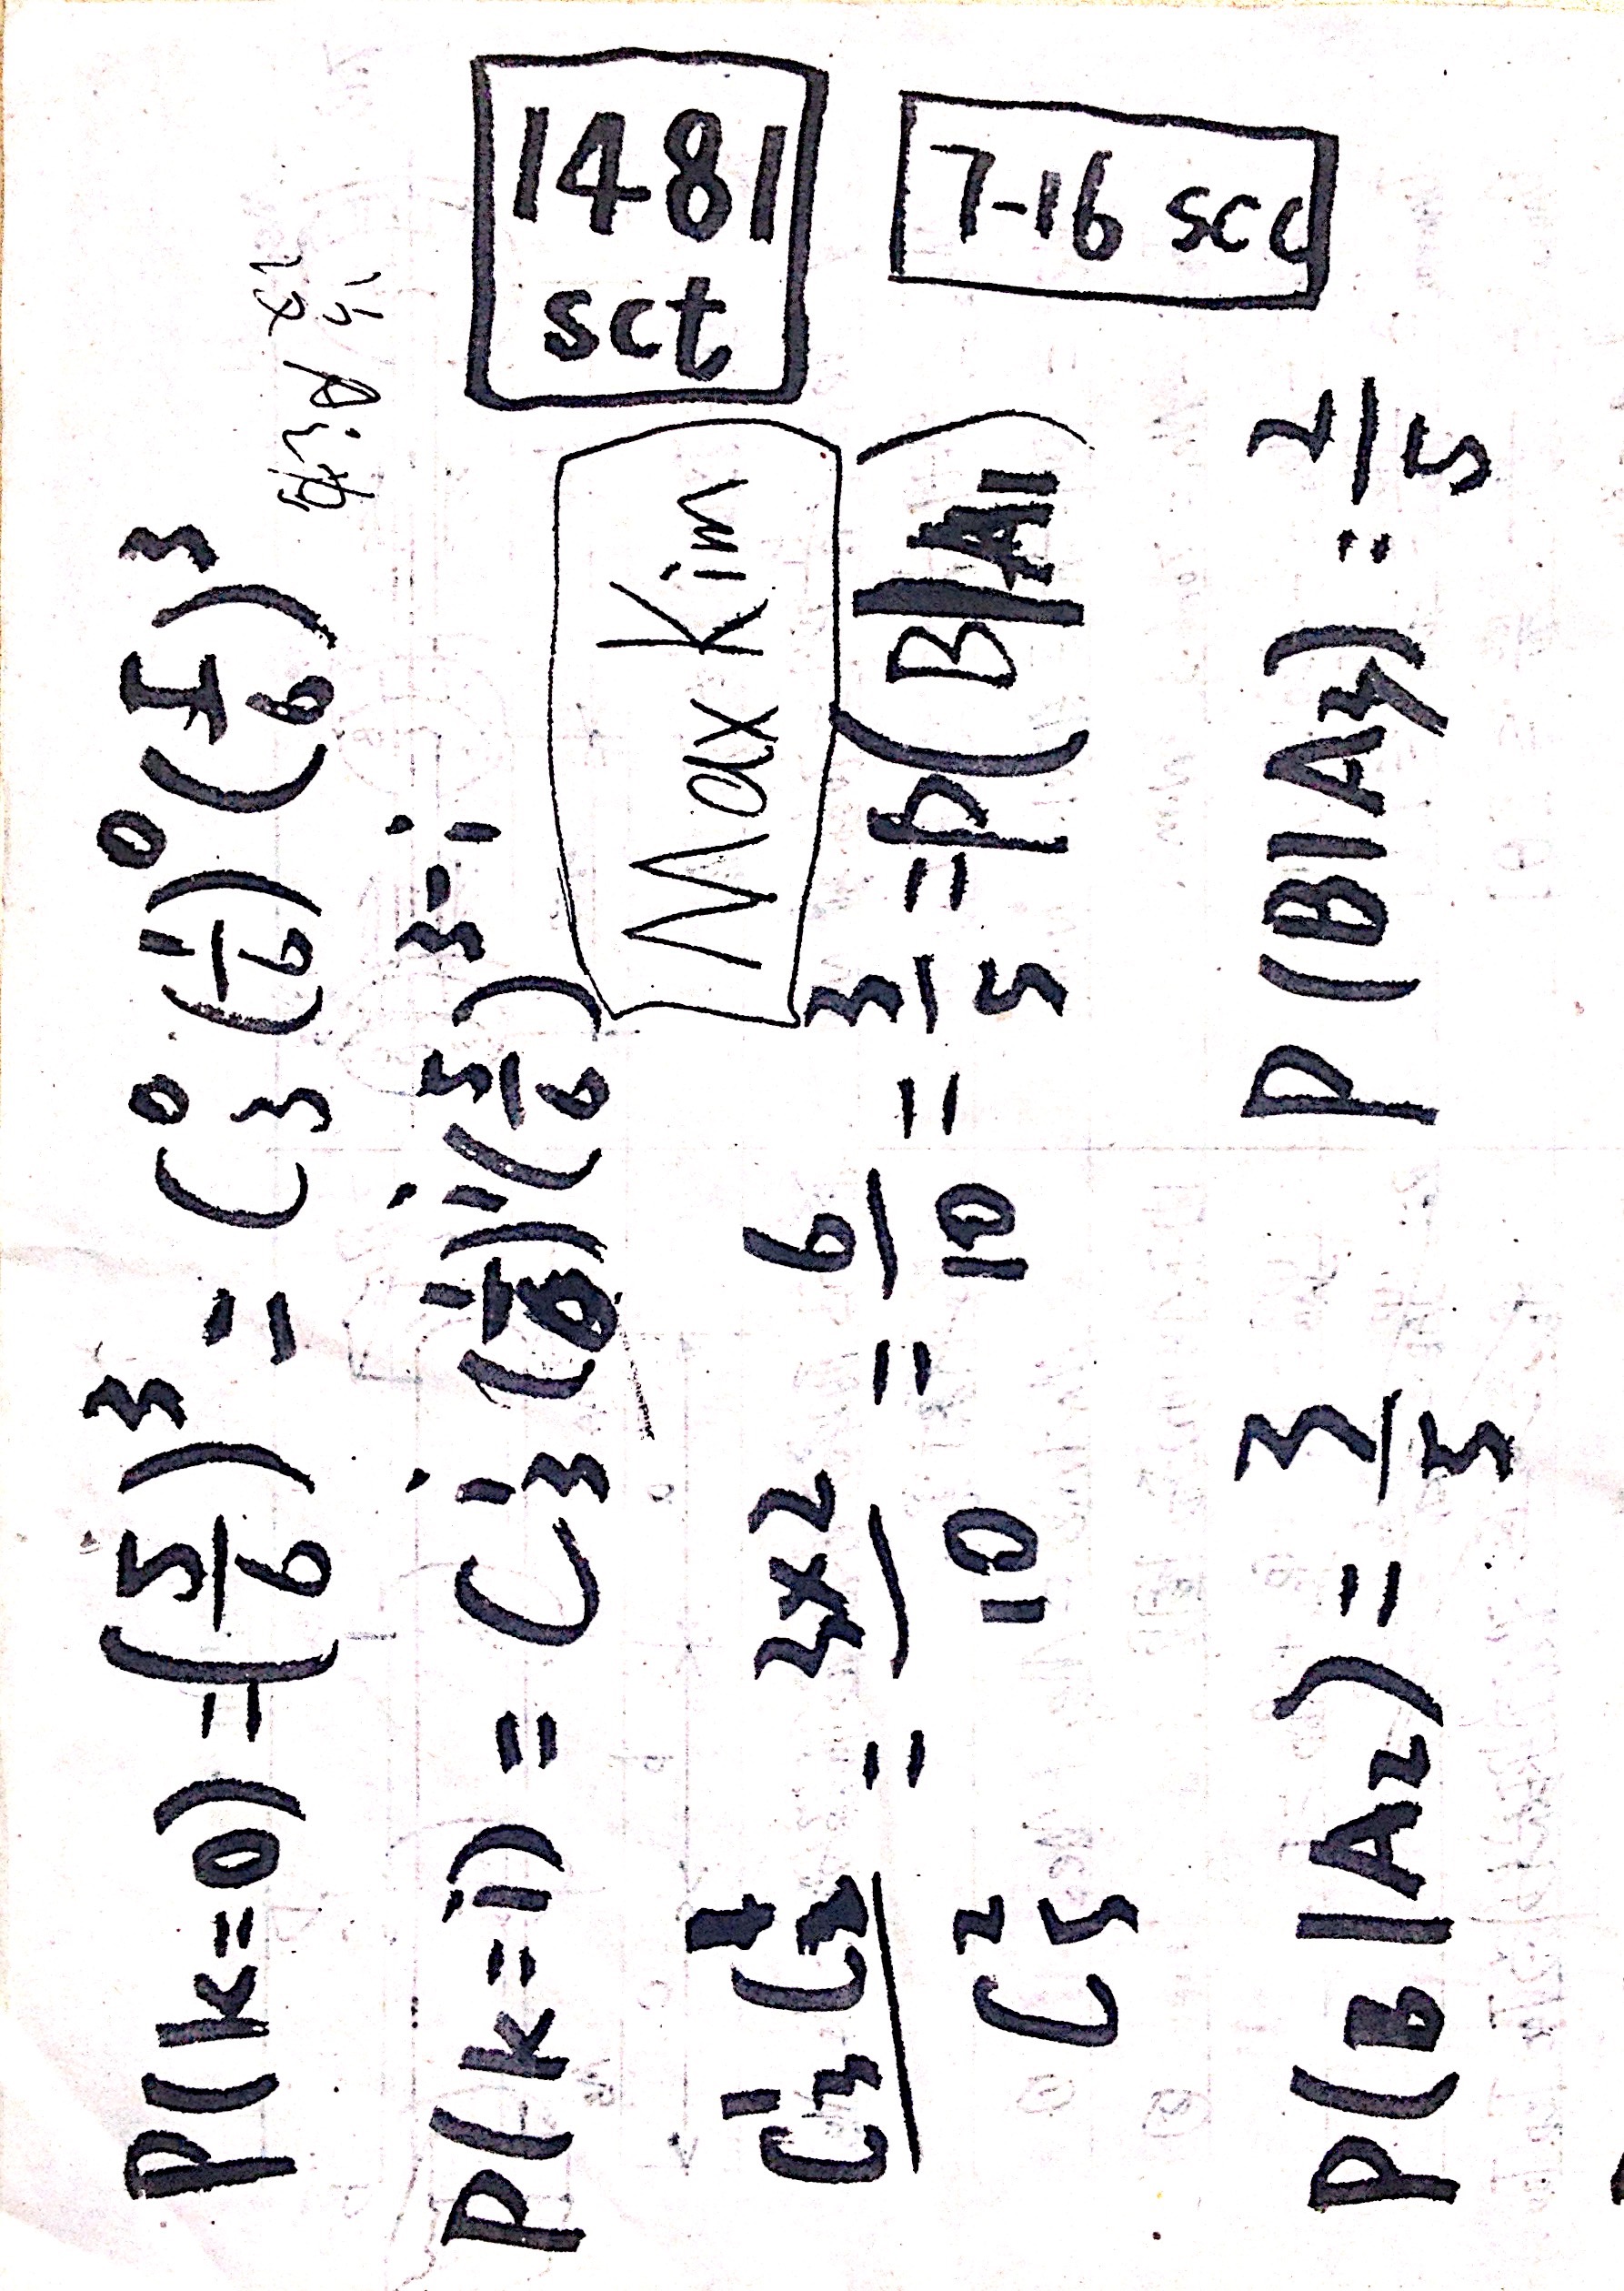 1481
sct
7-16 scc
P(k=0)=(5/6)³ = C₃⁰(1/6)⁰(5/6)³
P(k=i) = C₃ⁱ(1/6)ⁱ(5/6)³⁻ⁱ
Max Kim
C₃¹C₂¹/C₅² = 3×2/10 = 6/10 = 3/5 = P(B|A₁)
P(B|A₂) = 3/5 P(B|A₃) = 2/5